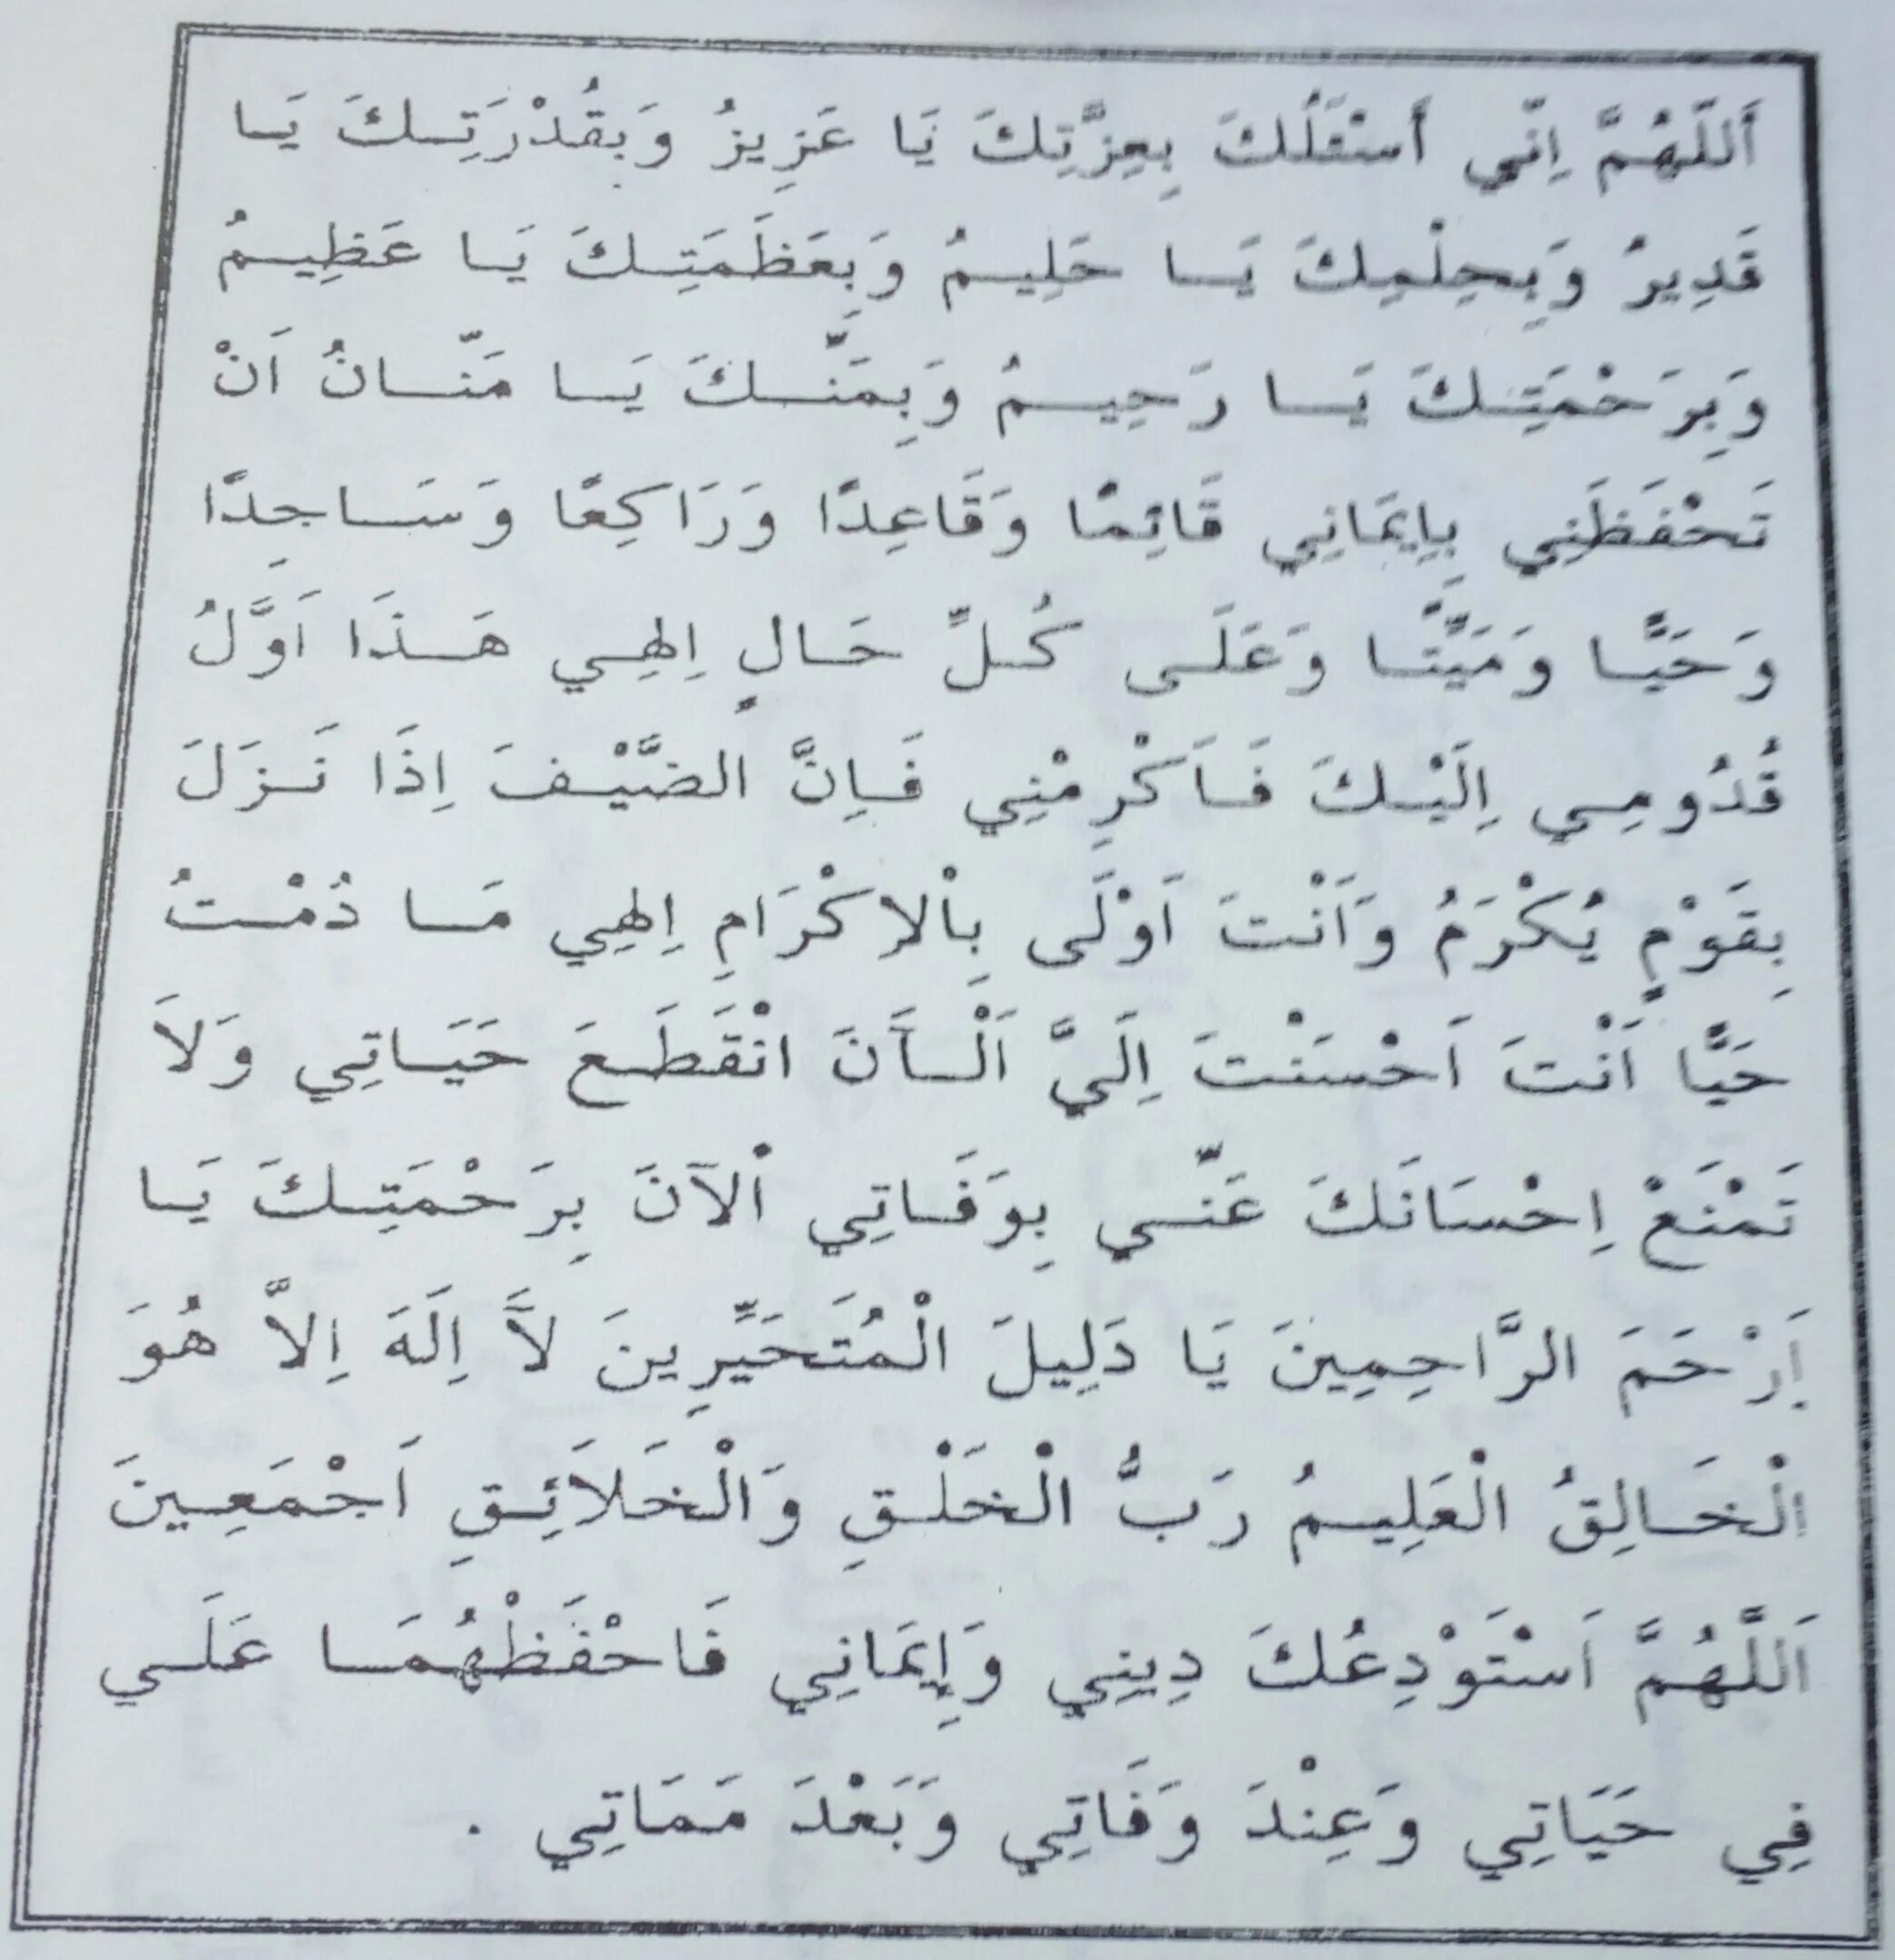 اَللّٰهُمَّ اِنِّي أَسْئَلُكَ بِعِزَّتِكَ يَا عَزِيزُ وَبِقُدْرَتِكَ يَا
قَدِيرُ وَبِحِلْمِكَ يَا حَلِيمُ وَبِعَظَمَتِكَ يَا عَظِيمُ
وَبِرَحْمَتِكَ يَا رَحِيمُ وَبِمَنِّكَ يَا مَنَّانُ اَنْ
تَحْفَظَنِي بِاِيمَانِي قَائِمًا وَقَاعِدًا وَرَاكِعًا وَسَاجِدًا
وَحَيًّا وَمَيِّتًا وَعَلَى كُلِّ حَالٍ اِلٰهِي هَذَا اَوَّلُ
قُدُومِي اِلَيْكَ فَاَكْرِمْنِي فَاِنَّ الضَّيْفَ اِذَا نَزَلَ
بِقَوْمٍ يُكْرَمُ وَاَنْتَ اَوْلَى بِاْلاِكْرَامِ اِلٰهِي مَا دُمْتُ
حَيًّا اَنْتَ اَحْسَنْتَ اِلَيَّ اَلْأَنَ انْقَطَعَ حَيَاتِي وَلاَ
تَمْنَعْ اِحْسَانَكَ عَنِّي بِوَفَاتِي اْلآنَ بِرَحْمَتِكَ يَا
اَرْحَمَ الرَّاحِمِينَ يَا دَلِيلَ الْمُتَحَيِّرِينَ لاَّ اِلَهَ اِلاَّ هُوَ
الْخَالِقُ الْعَلِيمُ رَبُّ الْخَلْقِ وَالْخَلاَئِقِ اَجْمَعِينَ
اَللَّهُمَّ اَسْتَوْدِعُكَ دِينِي وَإِيمَانِي فَاحْفَظْهُمَا عَلَي
فِي حَيَاتِي وَعِنْدَ وَفَاتِي وَبَعْدَ مَمَاتِي .